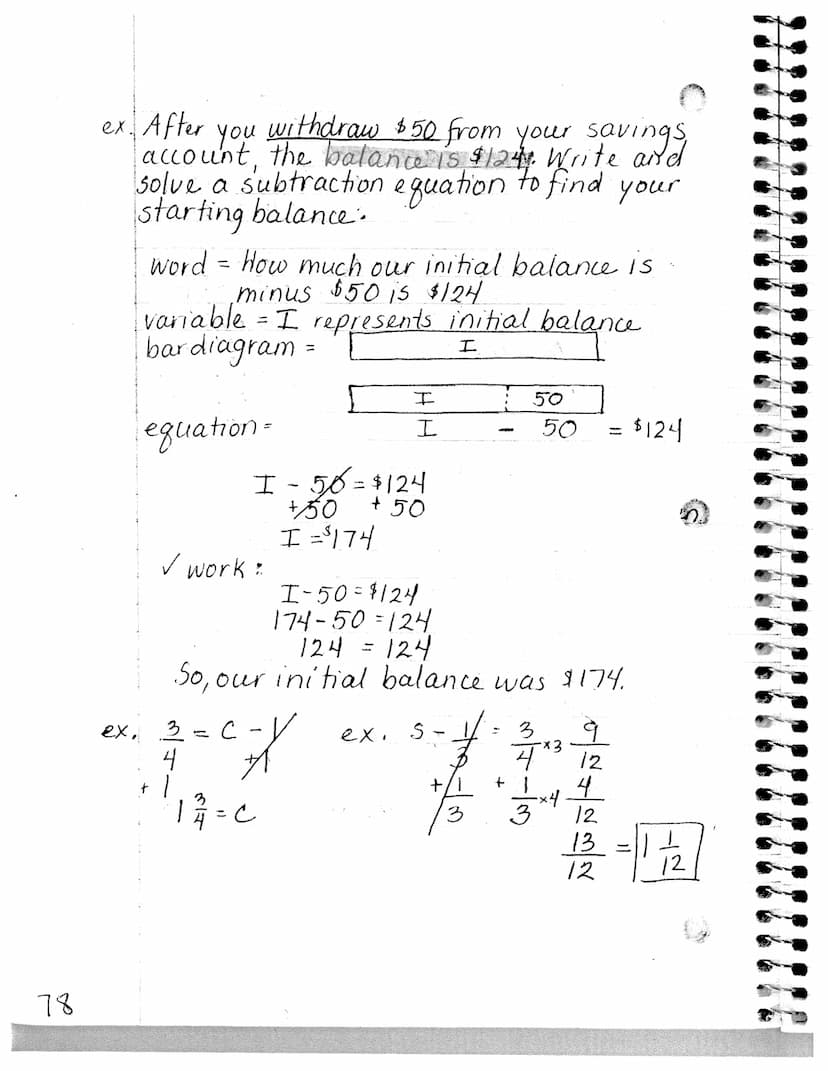 ex. After you withdraw $50 from your savings
account, the balance is $124. Write and
solve a subtraction equation to find your
starting balance.
word = How much our initial balance is
minus $50 is $124
variable = I represents initial balance
bar diagram =
I
I 50
equation = I - 50 = $124
I - 50 = $124
+50 +50
I = $174
✓ work:
I-50 = $124
174-50 = 124
124 = 124
So, our initial balance was $174.
ex. 3/4 = C - 1
+1 +1
1 3/4 = C
ex. S - 1/3 = 3/4 ×3 9/12
+ 1/3 + 1/3 ×4 4/12
13/12 = 1 1/12
78